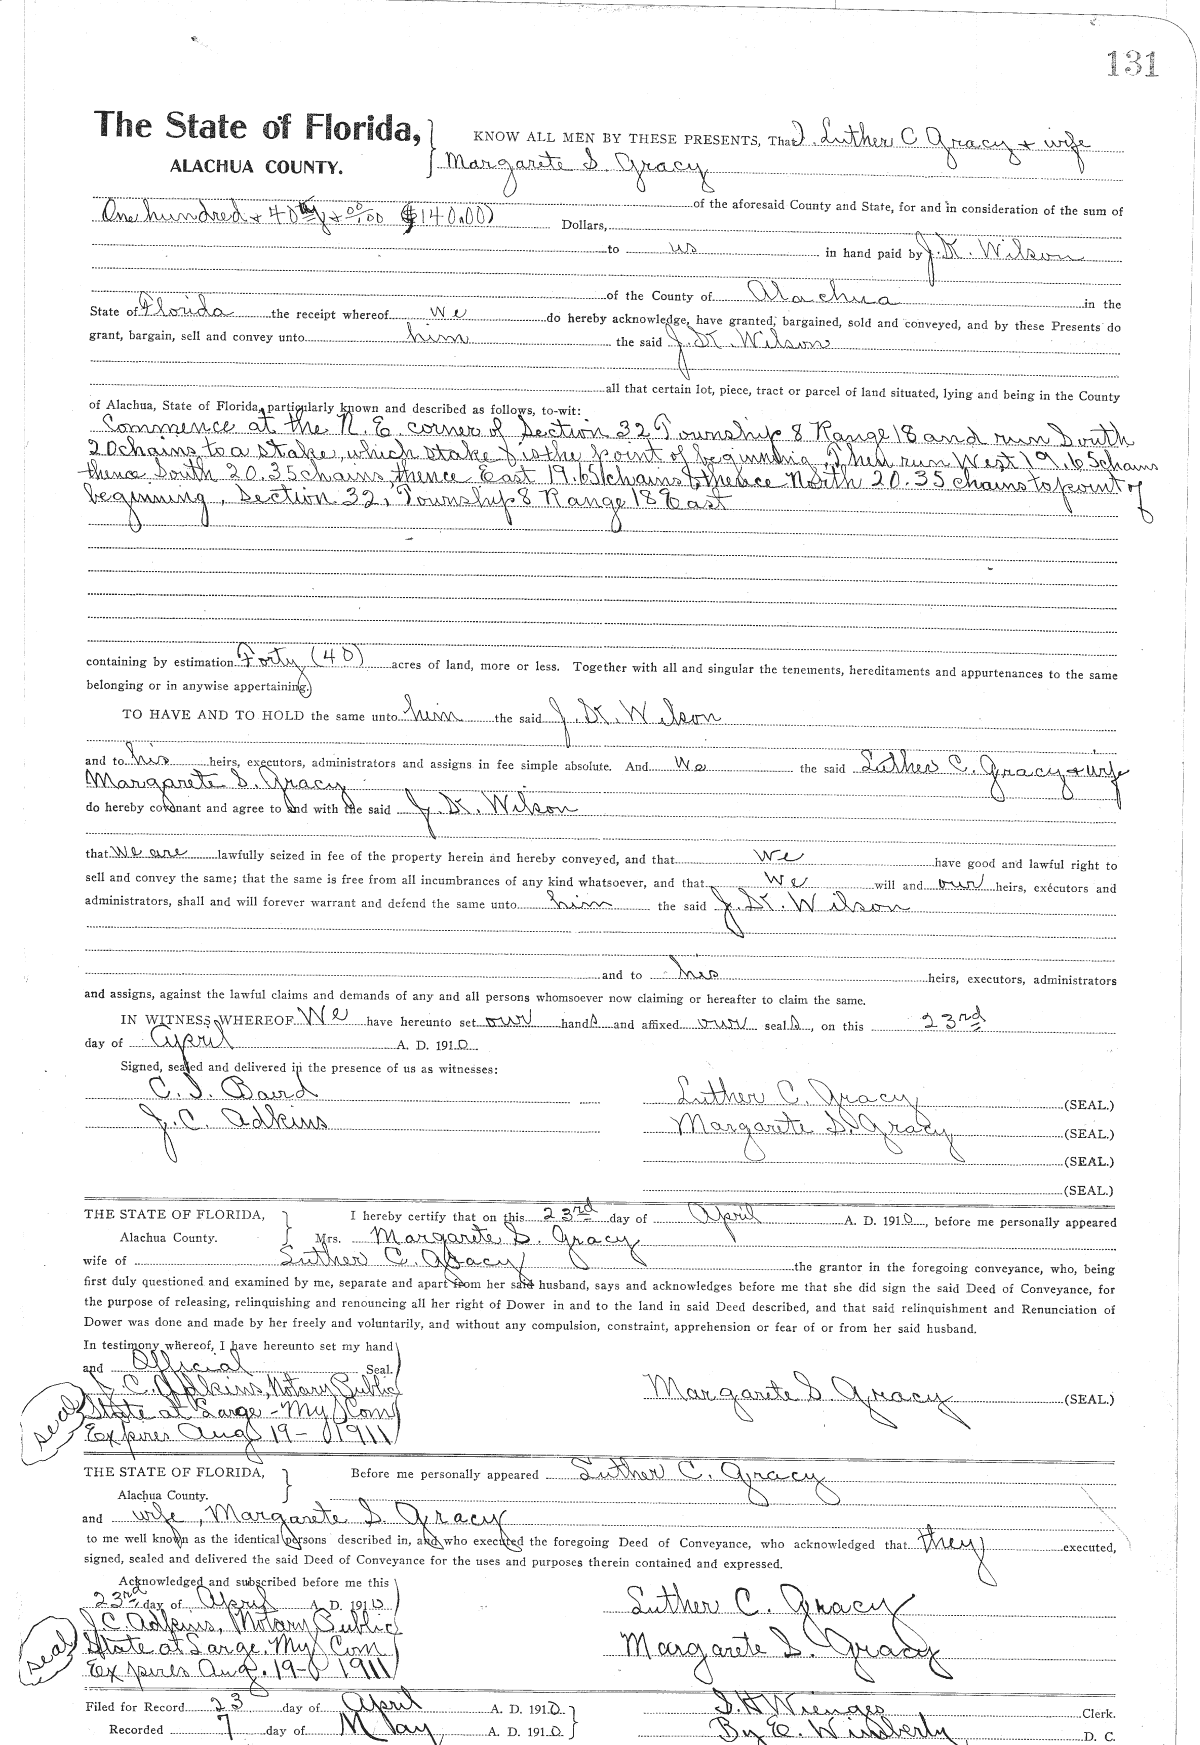 131
The State of Florida,
ALACHUA COUNTY.
KNOW ALL MEN BY THESE PRESENTS, That I, Luther C Gracy + wife
Margarete S. Gracy
of the aforesaid County and State, for and in consideration of the sum of
One hundred + 40 + 00/100 ($140.00) Dollars,
to us in hand paid by J. K. Wilson
of the County of Alachua in the
State of Florida the receipt whereof we do hereby acknowledge, have granted, bargained, sold and conveyed, and by these Presents do
grant, bargain, sell and convey unto him the said J. K. Wilson
all that certain lot, piece, tract or parcel of land situated, lying and being in the County
of Alachua, State of Florida, particularly known and described as follows, to-wit:
Commence at the N. E. corner of Section 32 Township 8 Range 18 and run South
20 chains, to a stake, which stake is the point of beginning, Then run West 19.65 chains
thence South 20.35 chains, thence East 19.65 chains thence North 20.35 chains to point of
beginning, Section 32, Township 8 Range 18 East
containing by estimation Forty (40) acres of land, more or less. Together with all and singular the tenements, hereditaments and appurtenances to the same
belonging or in anywise appertaining.
TO HAVE AND TO HOLD the same unto him the said J. K. Wilson
and to his heirs, executors, administrators and assigns in fee simple absolute. And We the said Luther C. Gracy + wife
Margarete S. Gracy
do hereby covenant and agree to and with the said J. K. Wilson
that We are lawfully seized in fee of the property herein and hereby conveyed, and that We have good and lawful right to
sell and convey the same; that the same is free from all incumbrances of any kind whatsoever, and that We will and our heirs, executors and
administrators, shall and will forever warrant and defend the same unto him the said J. K. Wilson
and to his heirs, executors, administrators
and assigns, against the lawful claims and demands of any and all persons whomsoever now claiming or hereafter to claim the same.
IN WITNESS WHEREOF We have hereunto set our hands and affixed our seals, on this 23rd
day of April A. D. 1910
Signed, sealed and delivered in the presence of us as witnesses:
C. I. Baird
J. C. Adkins
Luther C. Gracy (SEAL.)
Margarete S. Gracy (SEAL.)
(SEAL.)
(SEAL.)
THE STATE OF FLORIDA,
Alachua County.
I hereby certify that on this 23rd day of April A. D. 1910, before me personally appeared
Mrs. Margarete S. Gracy
wife of Luther C. Gracy the grantor in the foregoing conveyance, who, being
first duly questioned and examined by me, separate and apart from her said husband, says and acknowledges before me that she did sign the said Deed of Conveyance, for
the purpose of releasing, relinquishing and renouncing all her right of Dower in and to the land in said Deed described, and that said relinquishment and Renunciation of
Dower was done and made by her freely and voluntarily, and without any compulsion, constraint, apprehension or fear of or from her said husband.
In testimony whereof, I have hereunto set my hand
and Official Seal.
J. C. Adkins, Notary Public
State at Large - My Com
Expires Aug 19 - 1911
seal
Margarete S. Gracy (SEAL.)
THE STATE OF FLORIDA,
Alachua County.
Before me personally appeared Luther C. Gracy
and wife, Margarete S. Gracy
to me well known as the identical persons described in, and who executed the foregoing Deed of Conveyance, who acknowledged that they executed,
signed, sealed and delivered the said Deed of Conveyance for the uses and purposes therein contained and expressed.
Acknowledged and subscribed before me this
23rd day of April A. D. 1910
J. C. Adkins, Notary Public
State at Large, My Com
Expires Aug. 19 - 1911
seal
Luther C. Gracy
Margarete S. Gracy
Filed for Record 23 day of April A. D. 1910
Recorded 7 day of May A. D. 1910
S. H. Wienges Clerk.
By E. Wimberly D. C.